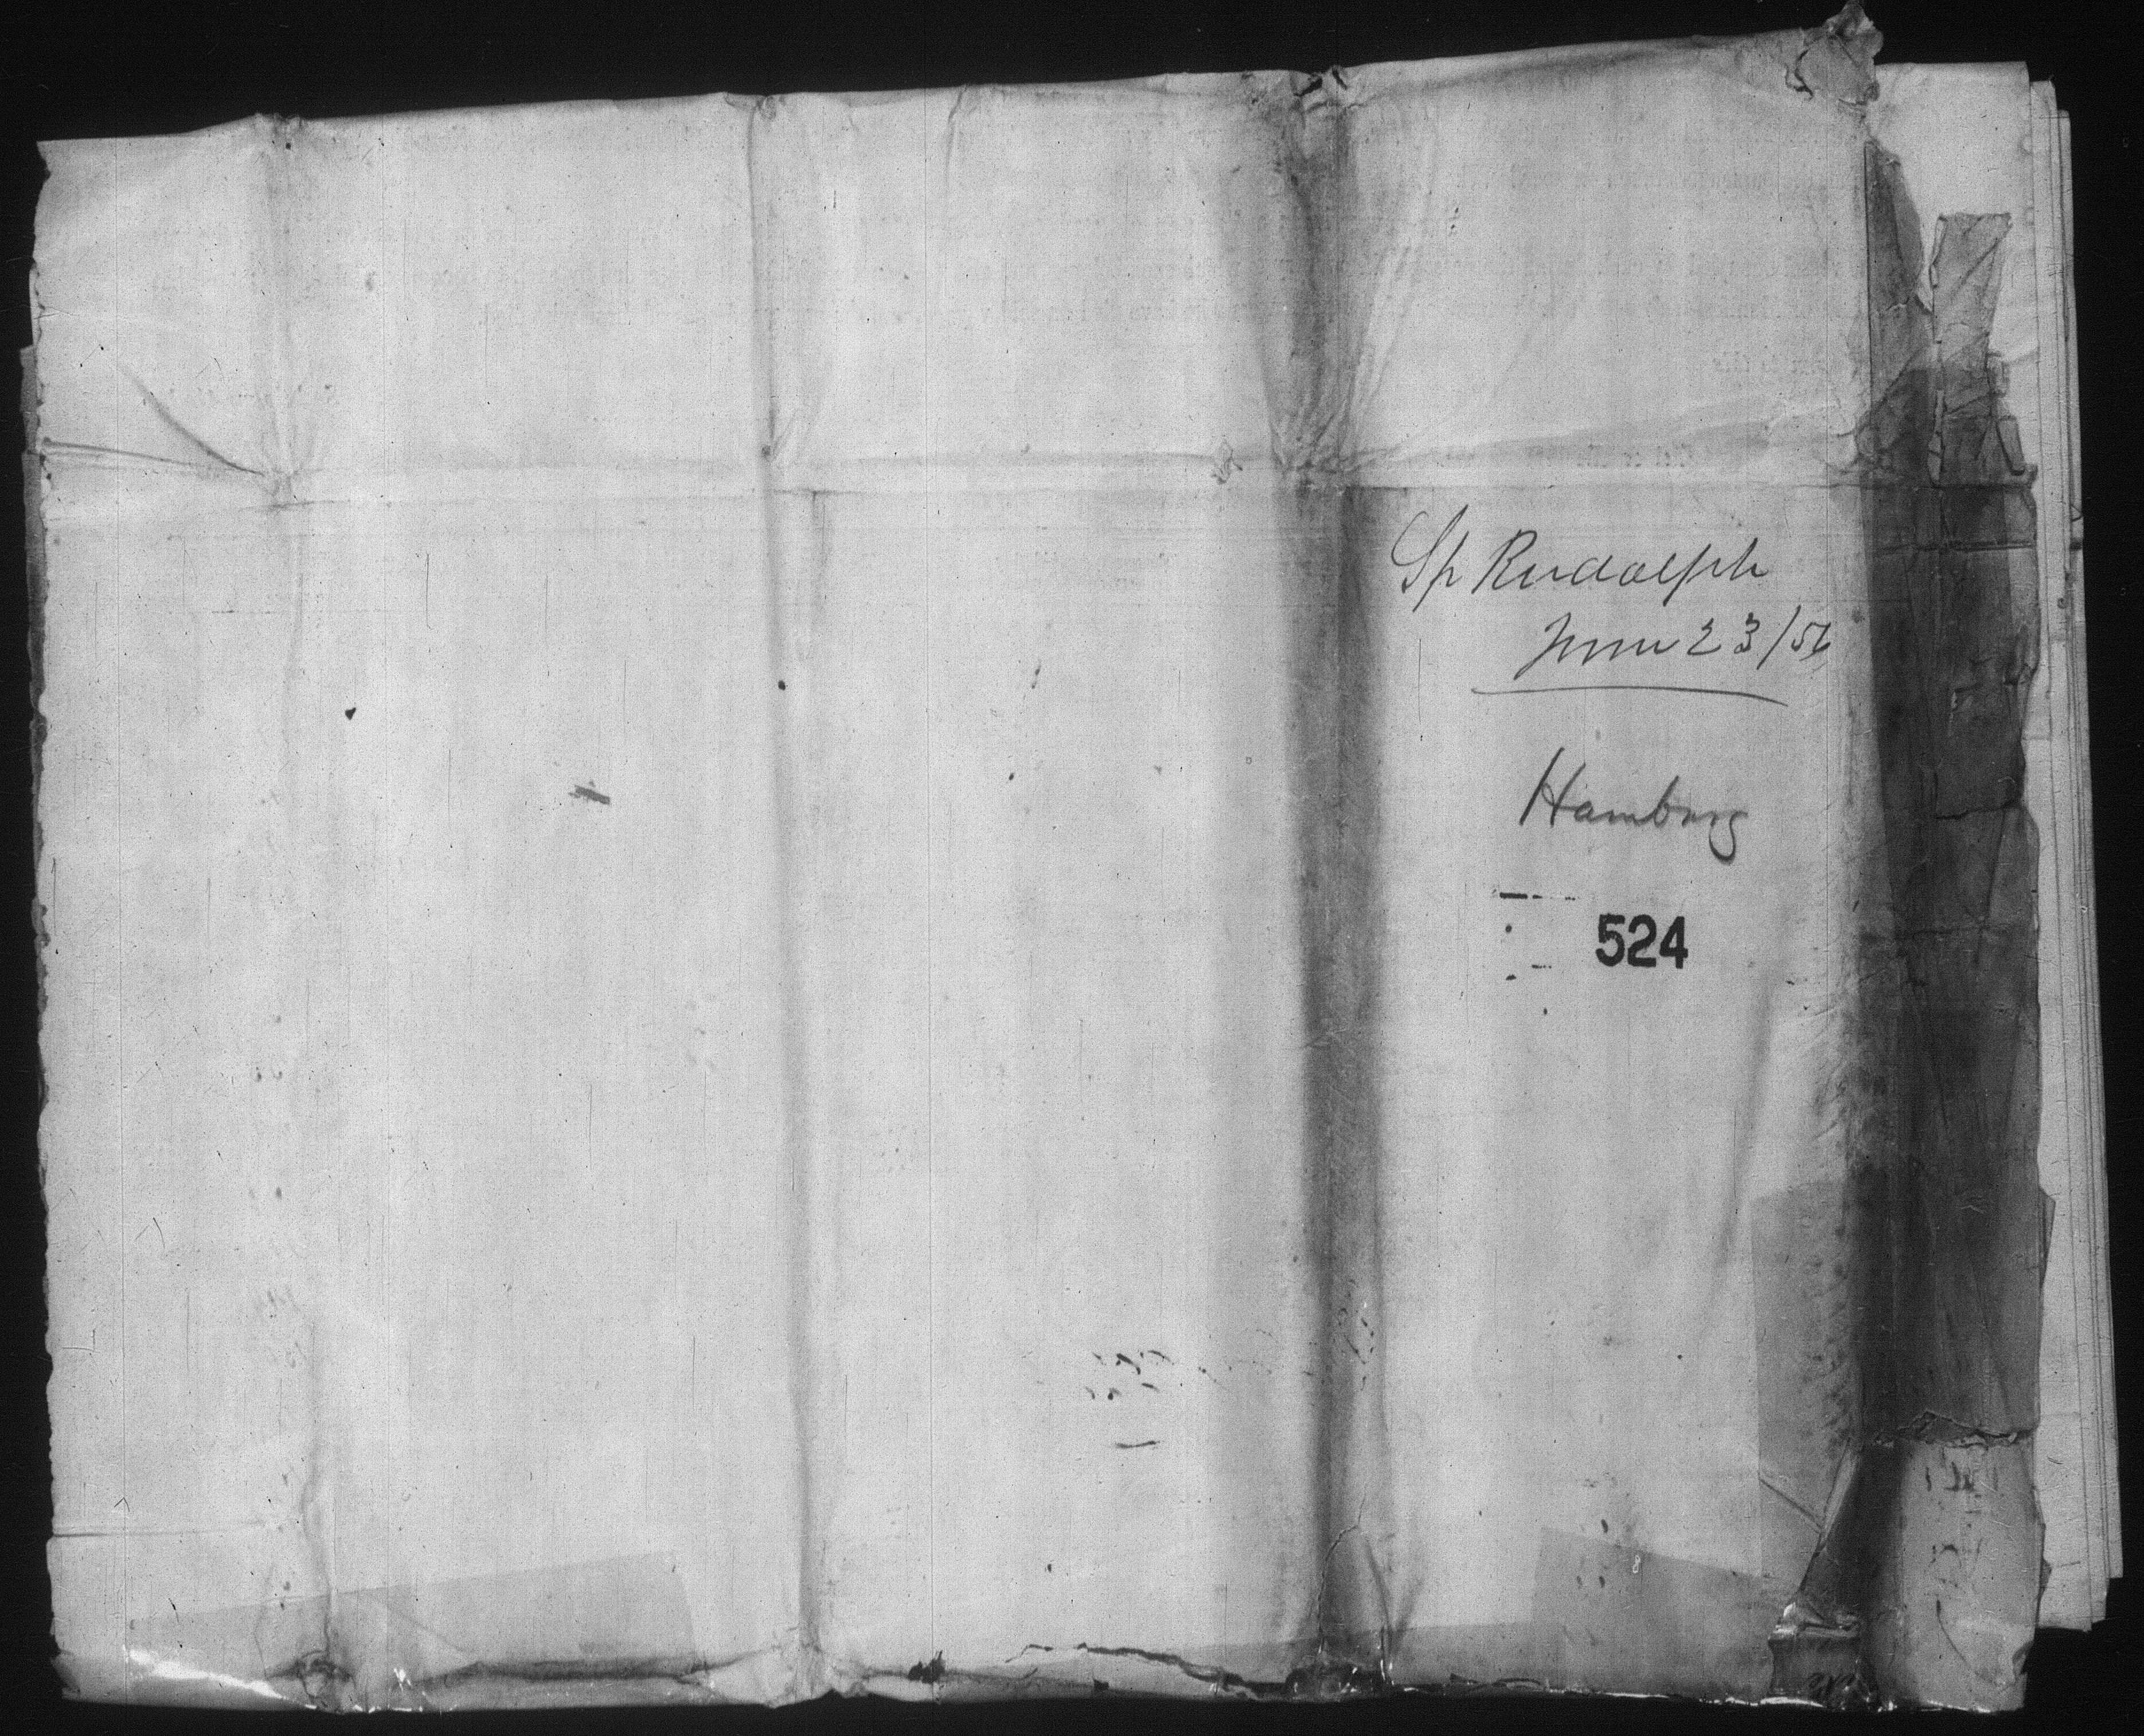 Sp Rudolph
June 23/56
Hamburg
524